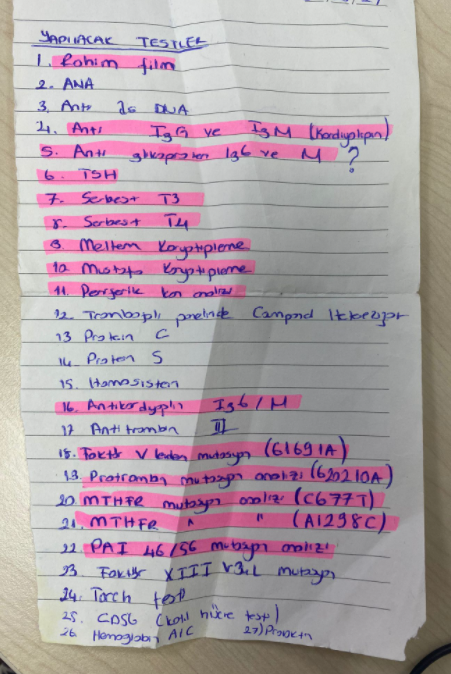 YAPILACAK TESTLER
1. Rahim film
2. ANA
3. Anti ds DNA
4. Anti IgG ve IgM (Kardiyolipin)
5. Anti glikoprotein IgG ve M ?
6. TSH
7. Serbest T3
8. Serbest T4
9. Meltem Karyotipleme
10. Mustafa Karyotipleme
11. Periferik kan analizi
12. Trombofili panelinde
13 Protein C
14. Protein S
15. Homosistein
16. Antikardiyolipin IgG / M
17 Antitrombin III
18. Faktör V leiden mutasyon (G1691A)
19. Protrombin mutasyon analizi (G20210A)
20. MTHFR mutasyon analizi (C677T)
21. MTHFR " " (A1298C)
22. PAI 4G/5G mutasyon analizi
23 Faktör XIII V34L mutasyon
24. Torch testi
25. CD56 (katil hücre testi)
26. Hemoglobin A1C 27) Prolaktin